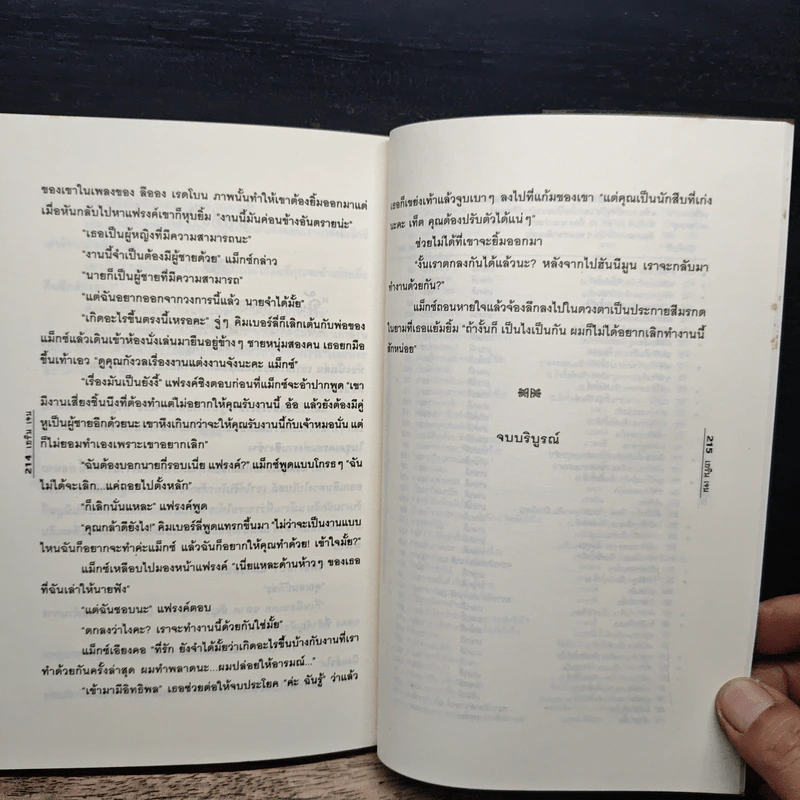 ของเขาในเพลงของ ลีออง เรดโบน ภาพนั้นทำให้เขาต้องยิ้มออกมาแต่
เมื่อหันกลับไปหาแฟรงค์เขาก็หุบยิ้ม "งานนี้มันค่อนข้างอันตรายน่ะ"
"เธอเป็นผู้หญิงที่มีความสามารถนะ"
"งานนี้จำเป็นต้องมีผู้ชายด้วย" แม็กซ์กล่าว
"นายก็เป็นผู้ชายที่มีความสามารถ"
"แต่ฉันอยากออกจากวงการนี้แล้ว นายจำได้มั้ย"
"เกิดอะไรขึ้นตรงนี้เหรอคะ" จู่ๆ คิมเบอร์ลี่ก็เลิกเต้นกับพ่อของ
แม็กซ์แล้วเดินเข้าห้องนั่งเล่นมายืนอยู่ข้างๆ ชายหนุ่มสองคน เธอยกมือ
ขึ้นเท้าเอว "ดูคุณกังวลเรื่องงานแต่งงานจังนะคะ แม็กซ์"
"เรื่องมันเป็นยังงี้" แฟรงค์ชิงตอบก่อนที่แม็กซ์จะอ้าปากพูด "เขา
มีงานเสี่ยงชิ้นนึงที่ต้องทำแต่ไม่อยากให้คุณรับงานนี้ อ้อ แล้วยังต้องมีคู่
หูเป็นผู้ชายอีกด้วยนะ เขาหึงเกินกว่าจะให้คุณรับงานนี้กับเจ้าหมอนั่น แต่
ก็ไม่ยอมทำเองเพราะเขาอยากเลิก"
"ฉันต้องบอกนายกี่รอบเนี่ย แฟรงค์?" แม็กซ์พูดแบบโกรธๆ "ฉัน
ไม่ได้จะเลิก...แค่ถอยไปตั้งหลัก"
"ก็เลิกนั่นแหละ" แฟรงค์พูด
"คุณกล้าดียังไง!" คิมเบอร์ลี่พูดแทรกขึ้นมา "ไม่ว่าจะเป็นงานแบบ
ไหนฉันก็อยากจะทำค่ะแม็กซ์ แล้วฉันก็อยากให้คุณทำด้วย! เข้าใจมั้ย?"
แม็กซ์เหลือบไปมองหน้าแฟรงค์ "เนี่ยแหละด้านห้าวๆ ของเธอ
ที่ฉันเล่าให้นายฟัง"
"แต่ฉันชอบนะ" แฟรงค์ตอบ
"ตกลงว่าไงคะ? เราจะทำงานนี้ด้วยกันใช่มั้ย"
แม็กซ์เอียงคอ "ที่รัก ยังจำได้มั้ยว่าเกิดอะไรขึ้นบ้างกับงานที่เรา
ทำด้วยกันครั้งล่าสุด ผมทำพลาดนะ...ผมปล่อยให้อารมณ์..."
"เข้ามามีอิทธิพล" เธอช่วยต่อให้จบประโยค "ค่ะ ฉันรู้" ว่าแล้ว
214 เชอรีน เจน
เธอก็เขย่งเท้าแล้วจูบเบาๆ ลงไปที่แก้มของเขา "แต่คุณเป็นนักสืบที่เก่ง
นะคะ เท็ต คุณต้องปรับตัวได้แน่ๆ"
ช่วยไม่ได้ที่เขาจะยิ้มออกมา
"งั้นเราตกลงกันได้แล้วนะ? หลังจากไปฮันนีมูน เราจะกลับมา
ทำงานด้วยกัน?"
แม็กซ์ถอนหายใจแล้วจ้องลึกลงไปในดวงตาเป็นประกายสีมรกต
ในยามที่เธอแย้มยิ้ม "ถ้างั้นก็ เป็นไงเป็นกัน ผมก็ไม่ได้อยากเลิกทำงานนี้
สักหน่อย"
จบบริบูรณ์
215